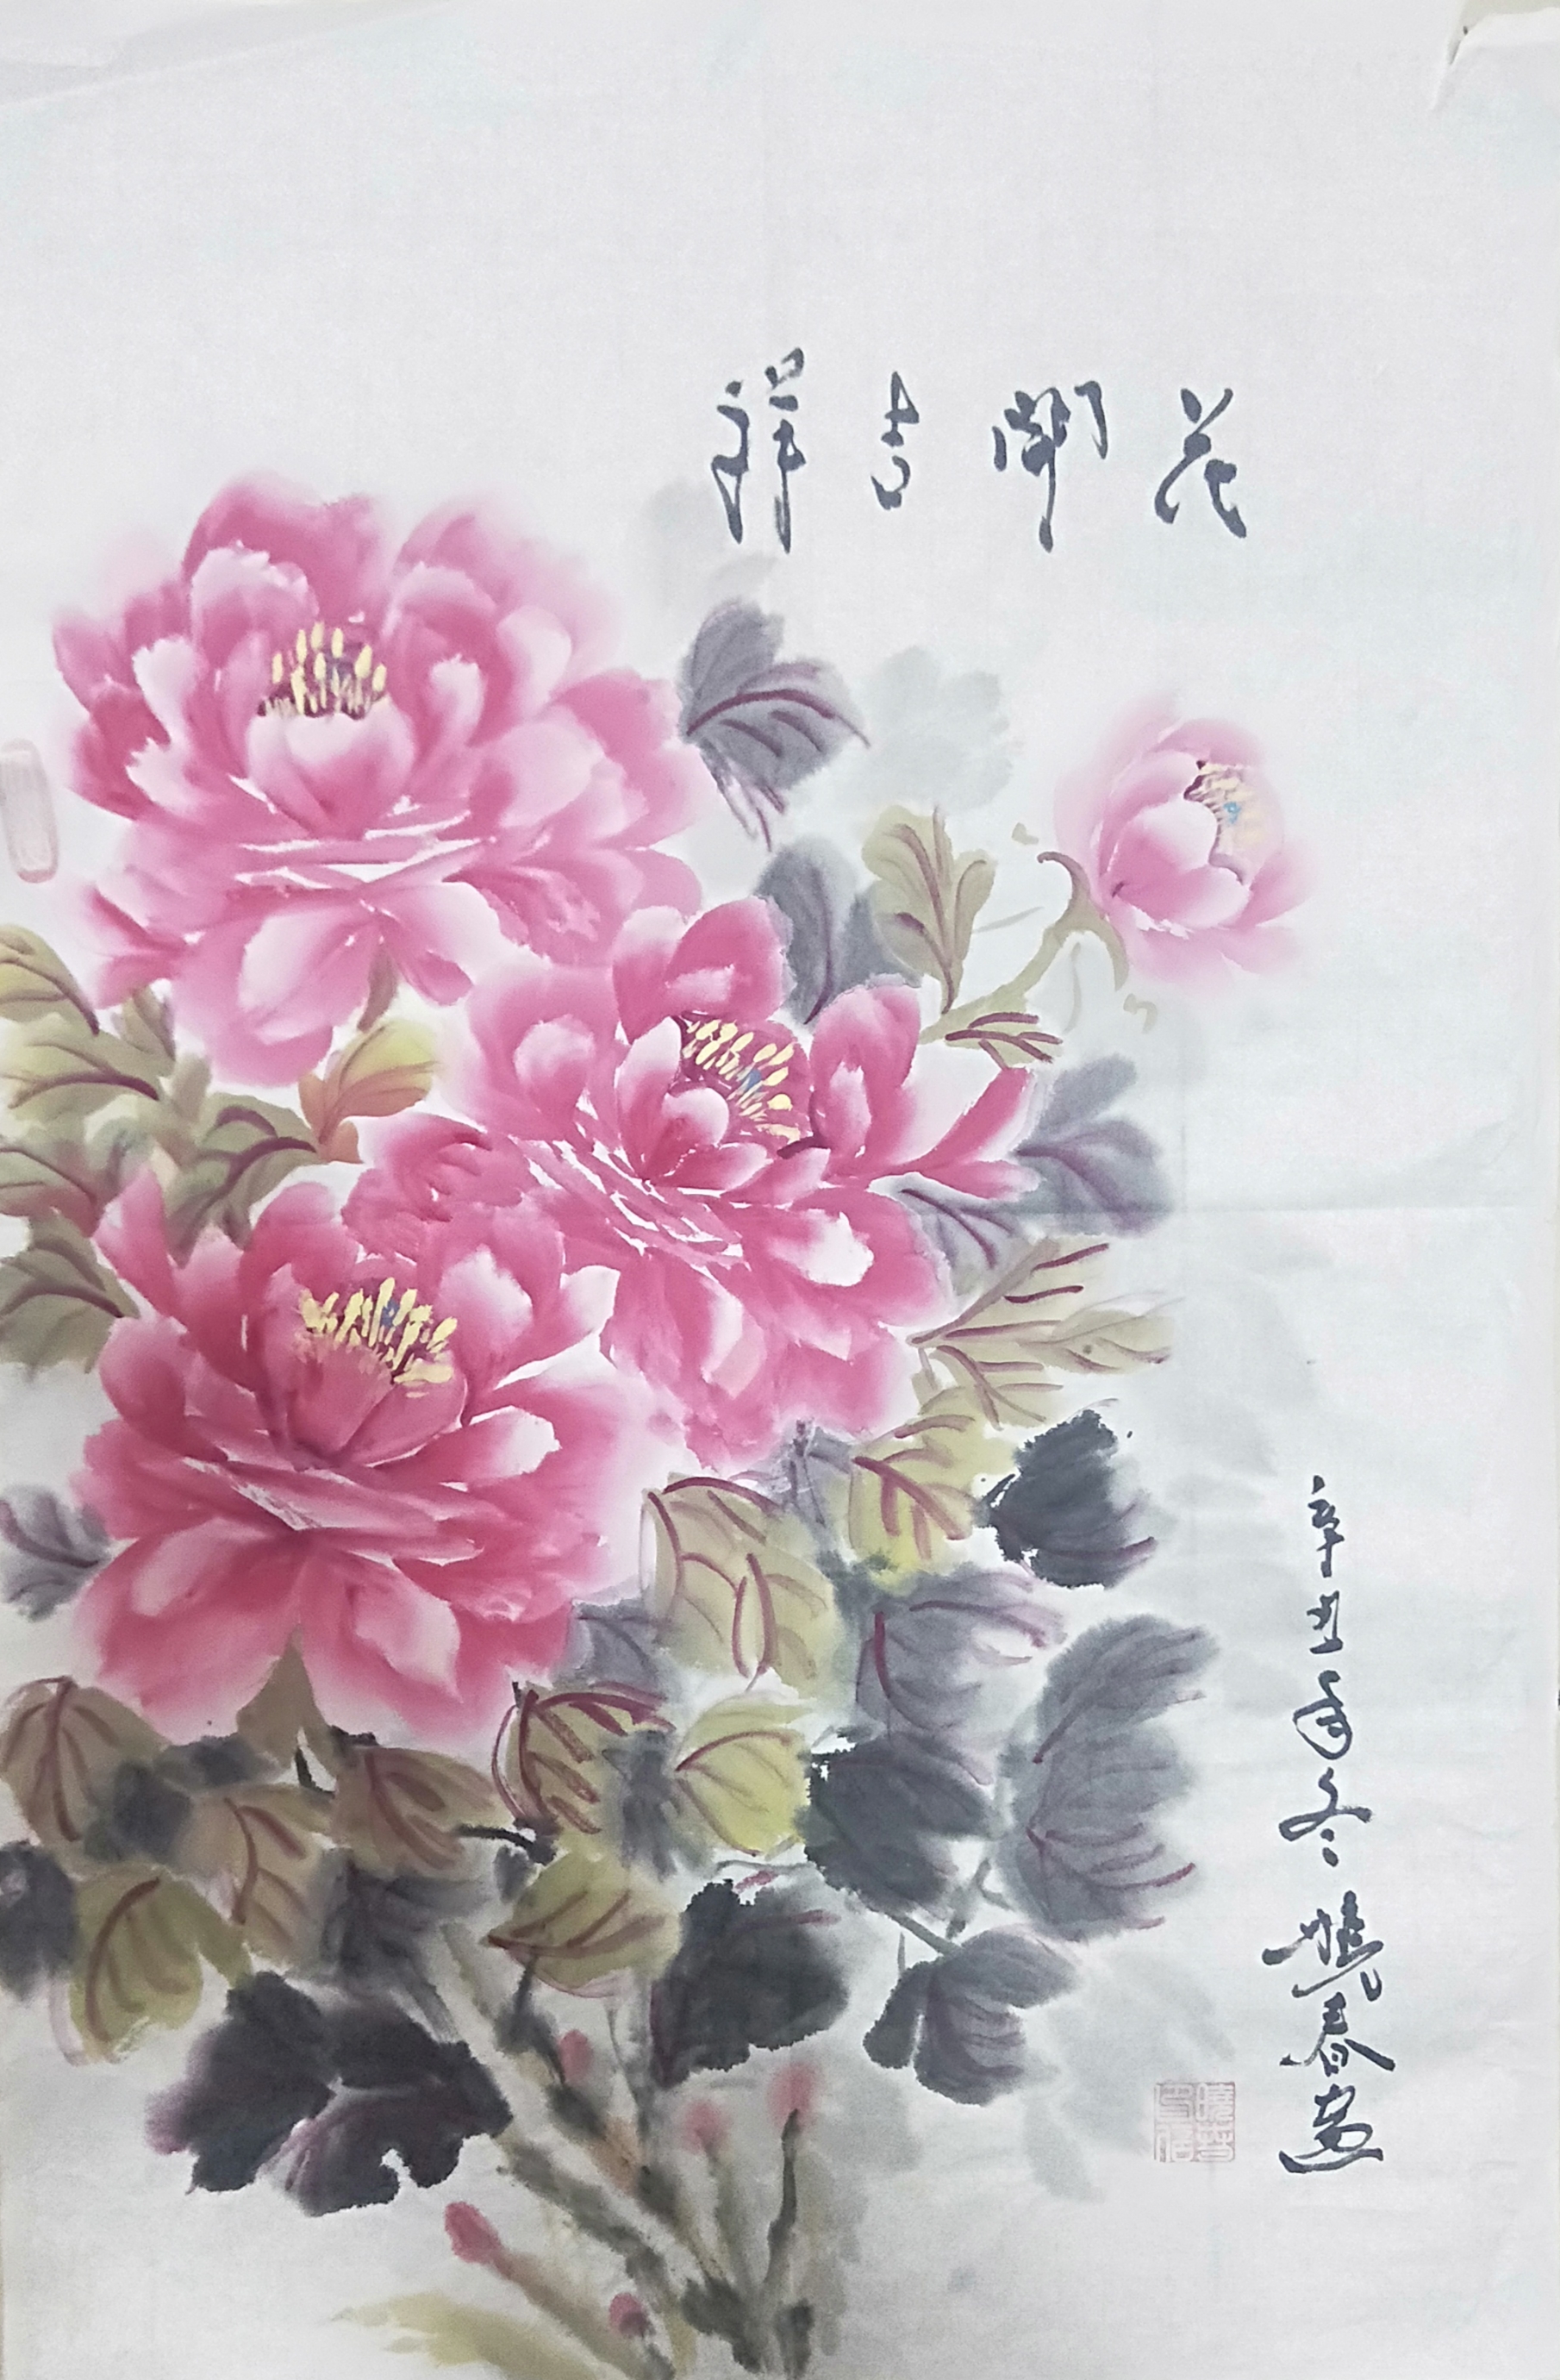 花開吉祥
辛丑年冬曉春畫